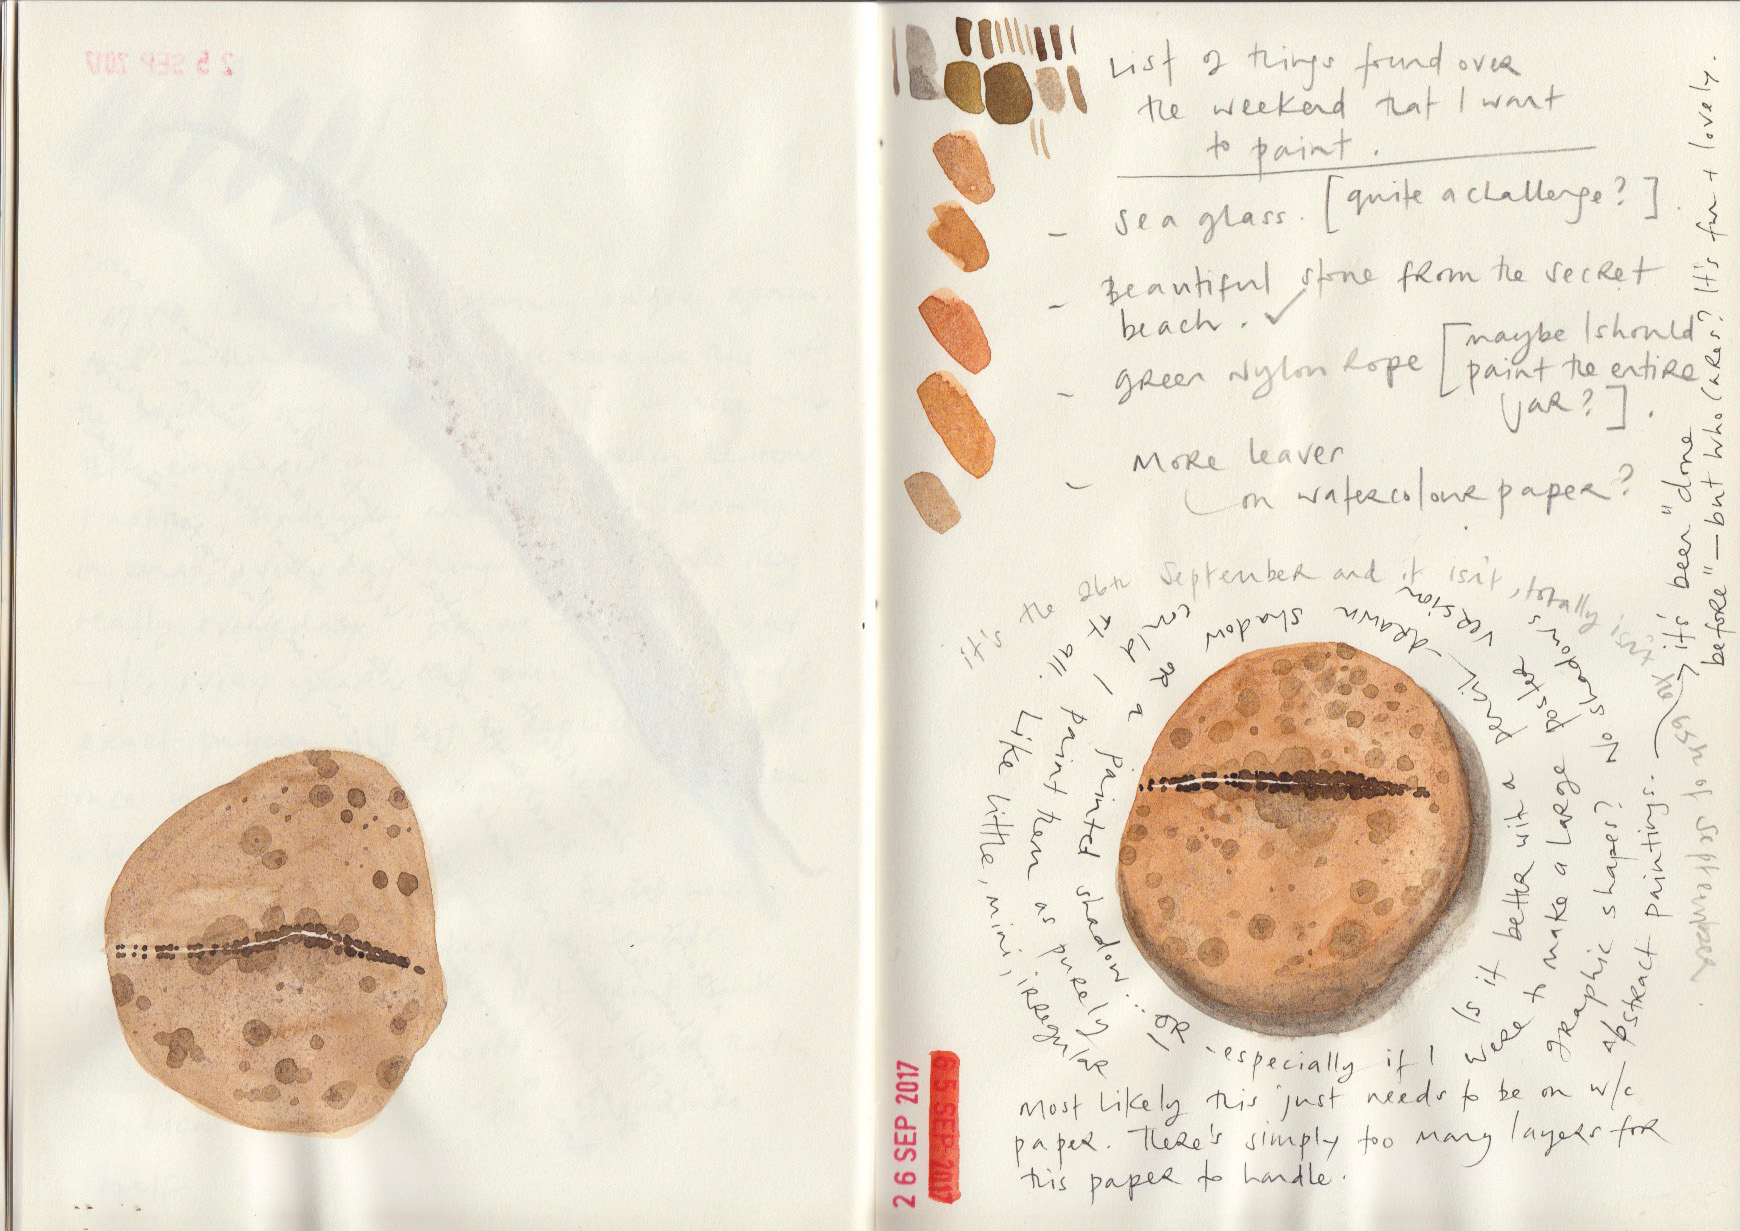 25 SEP 2017
List of things found over
the weekend that I want
to paint.
- sea glass. [quite a challenge?].
- Beautiful stone from the secret
beach. ✓
- green nylon rope [maybe I should
paint the entire
jar?].
- More leaves
on watercolour paper?
it is the 26th September and it isn't, totally isn't
25th of September.
Is it better with a pencil-drawn shadow
or a painted shadow... OR
could I paint them as purely
graphic shapes? No shadows
at all. Like little, mini, irregular
abstract paintings.
→ it's been "done
before" — but who cares? It's fun + lovely.
- especially if I were to make a large poster version
Most likely this just needs to be on w/c
paper. There's simply too many layers for
this paper to handle.
26 SEP 2017
SEP 2017